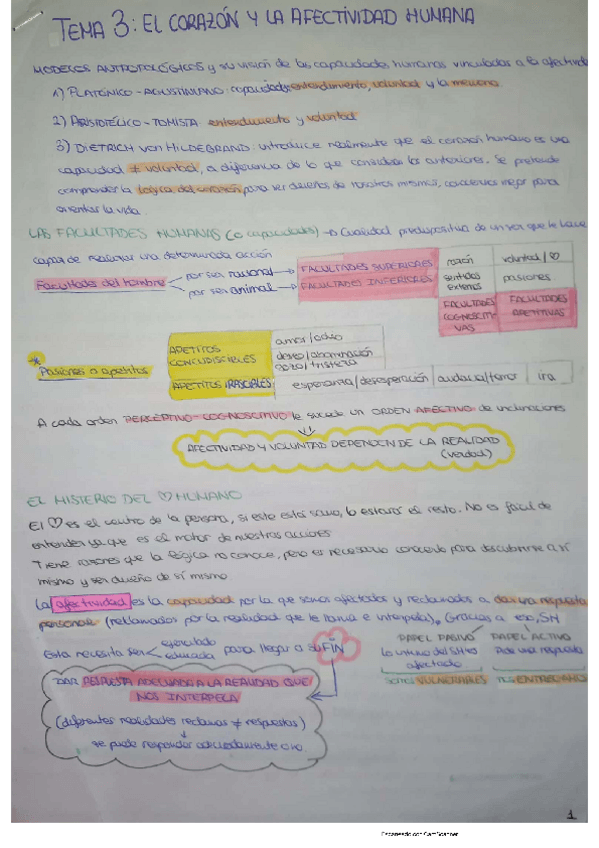 TEMA 3: EL CORAZÓN Y LA AFECTIVIDAD HUMANA
MODELOS ANTROPOLÓGICOS y su visión de las capacidades humanas vinculadas a la afectividad
1) PLATÓNICO-AGUSTINIANO: capacidades entendimiento, voluntad y la memoria
2) ARISTOTÉLICO-TOMISTA: entendimiento y voluntad
3) DIETRICH von HILDEBRAND: introduce realmente que el corazón humano es una
capacidad ≠ voluntad, a diferencia de lo que consideran los anteriores. Se pretende
comprender la lógica del corazón para ser dueños de nosotros mismos, conocernos mejor para
orientar la vida.
LAS FACULTADES HUMANAS (o capacidades) → Cualidad predispositiva de un ser que le hace
capaz de realizar una determinada acción
Facultades del hombre
por ser racional → FACULTADES SUPERIORES razón voluntad/♡
por ser animal → FACULTADES INFERIORES sentidos externos pasiones
FACULTADES COGNOSCITIVAS FACULTADES APETITIVAS
* Pasiones o apetitos
APETITOS CONCUPISCIBLES
amor/odio
deseo/abominación
gozo/tristeza
APETITOS IRASCIBLES esperanza/desesperación audacia/temor ira
A cada orden PERCEPTIVO-COGNOSCITIVO le sucede un ORDEN AFECTIVO de inclinaciones
AFECTIVIDAD Y VOLUNTAD DEPENDEN DE LA REALIDAD
(verdad)
EL MISTERIO DEL ♡ HUMANO
El ♡ es el centro de la persona, si este está sano, lo estará el resto. No es fácil de
entender ya que es el motor de nuestras acciones
Tiene razones que la lógica no conoce, pero es necesario conocerlo para descubrirse a sí
mismo y ser dueño de sí mismo
La afectividad es la capacidad por la que somos afectados y reclamados a dar una respuesta
personal (reclamados por la realidad que te llama e interpela). Gracias a
Esta necesita ser ejercitado educada para llegar a su FIN
PAPEL PASIVO PAPEL ACTIVO
afectado
Pide una respuesta
somos VULNERABLES
DAR RESPUESTA ADECUADA A LA REALIDAD QUE
NOS INTERPELA
(diferentes realidades reclaman ≠ respuestas)
↓
se puede responder adecuadamente o no.
1
Escaneado con CamScanner